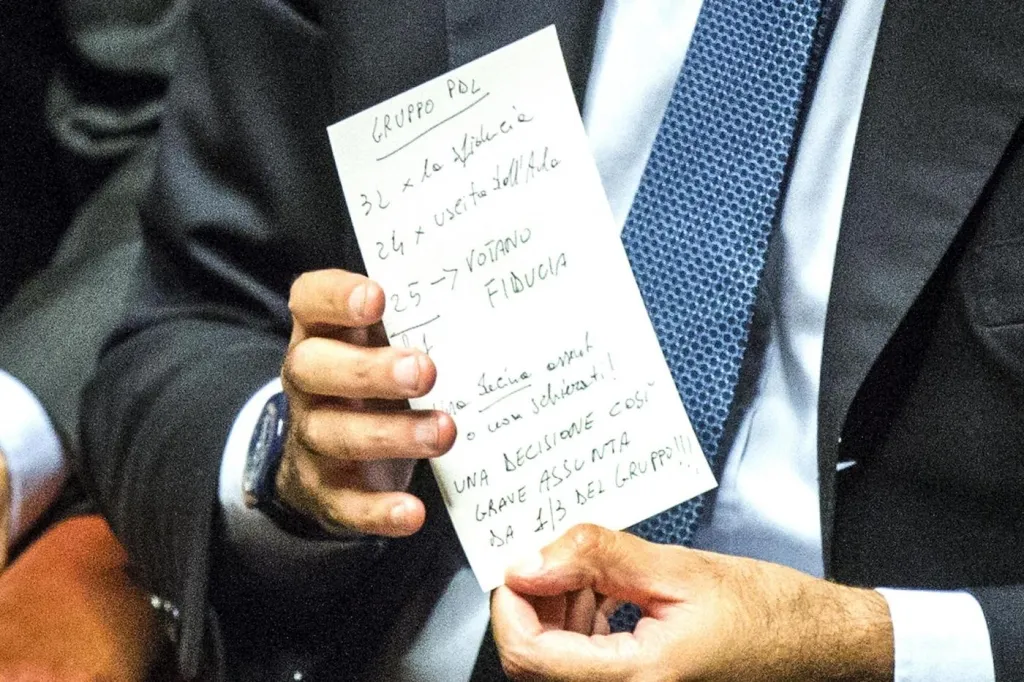 GRUPPO PDL
32 x la sfiducia
24 x uscita dall'Aula
25 → VOTANO
FIDUCIA
decina assenti
o non schierati!
UNA DECISIONE COSÌ
GRAVE ASSUNTA
DA 1/3 DEL GRUPPO!!!